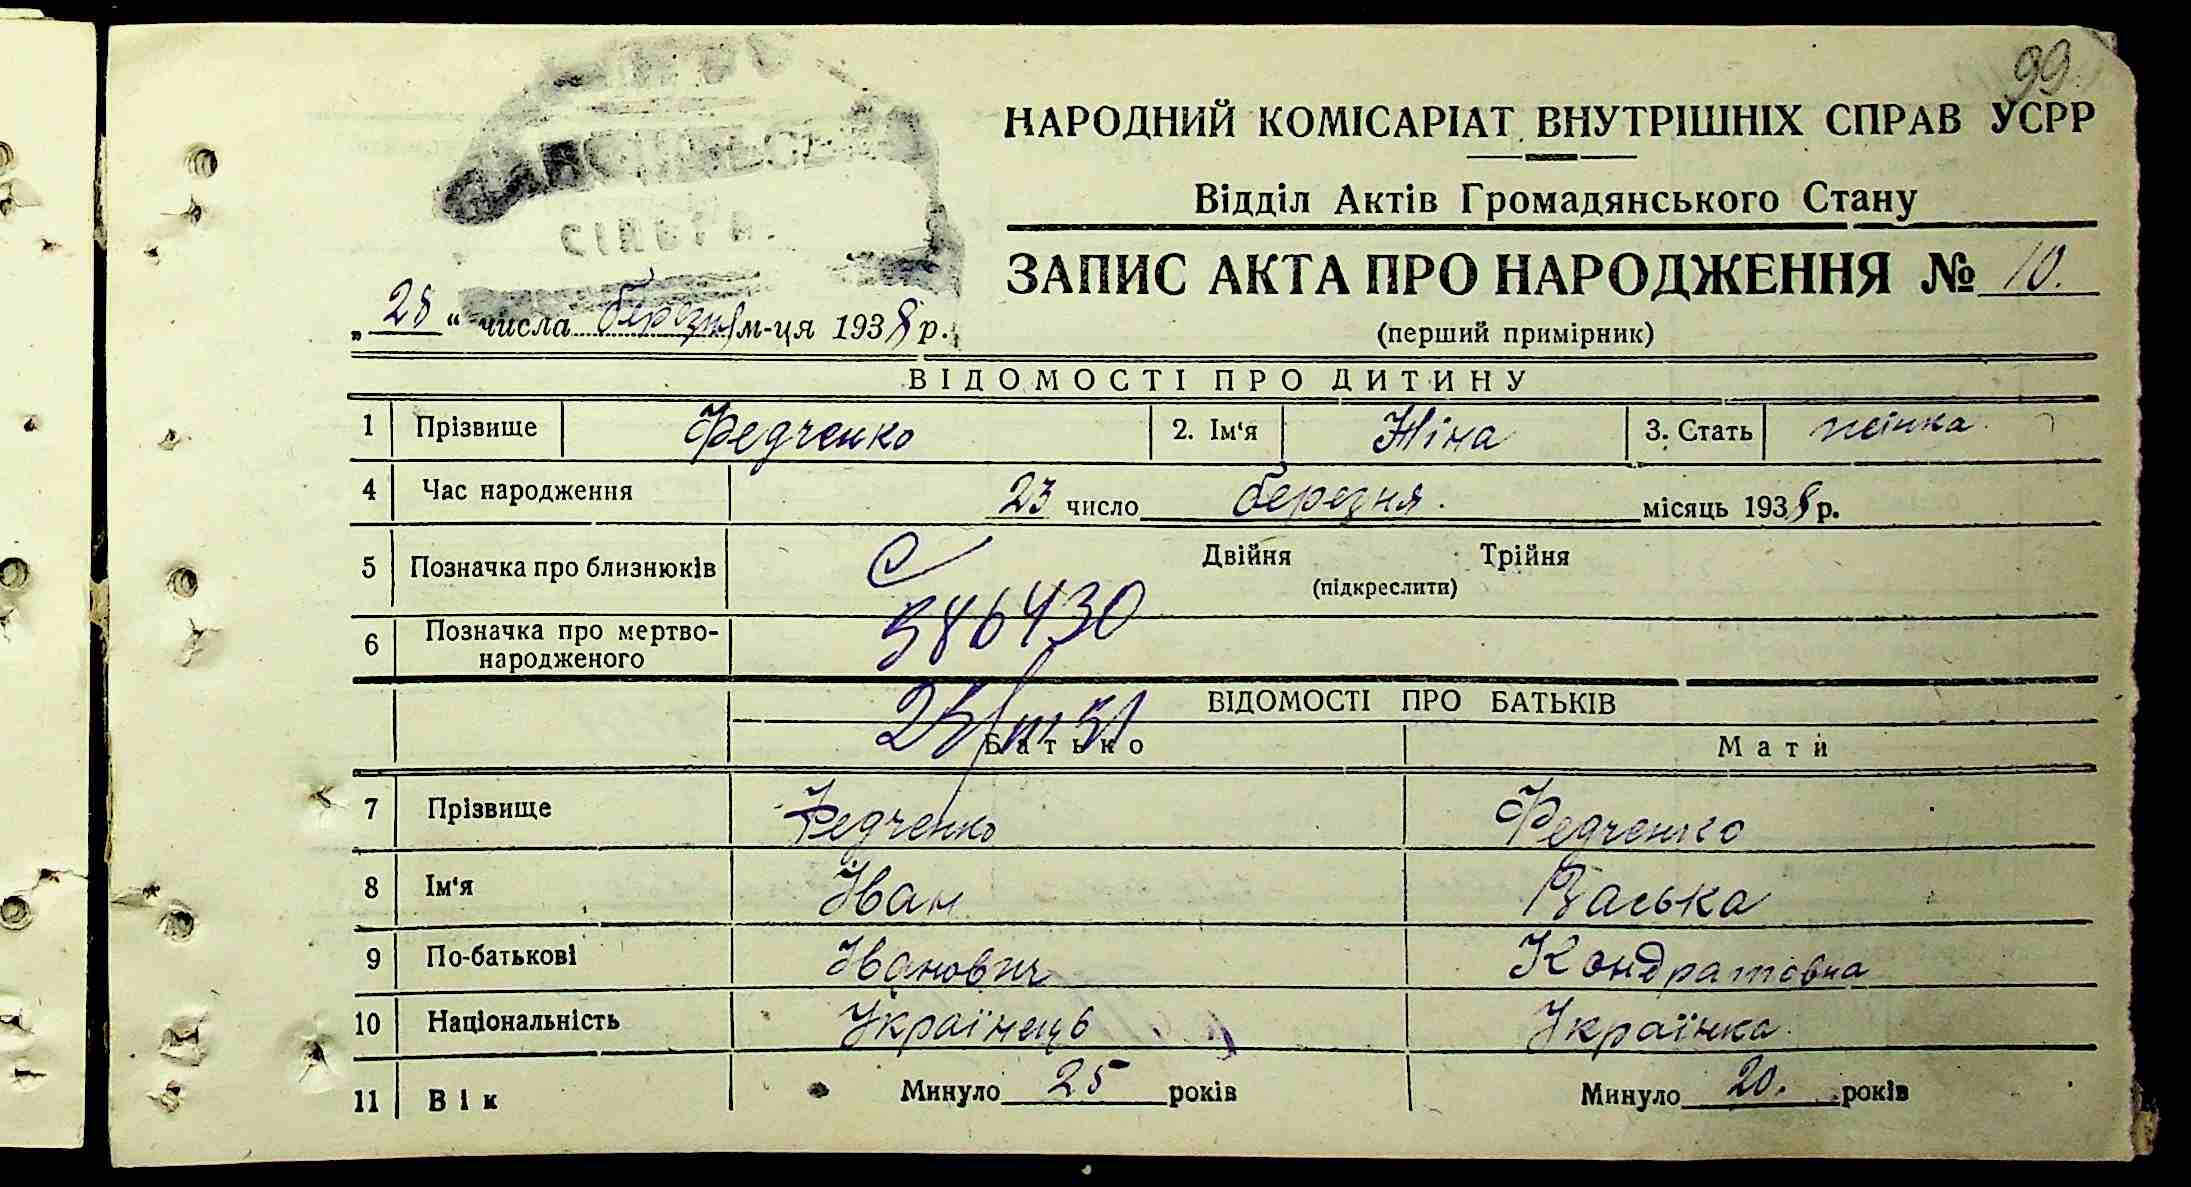 99
НАРОДНИЙ КОМІСАРІАТ ВНУТРІШНІХ СПРАВ УСРР
Відділ Актів Громадянського Стану
СІЛЬРА
ЗАПИС АКТА ПРО НАРОДЖЕННЯ № 10.
„28“ числа березня м-ця 1938 р.
(перший примірник)
ВІДОМОСТІ ПРО ДИТИНУ
1 Прізвище Федченко 2. Ім'я Ніна 3. Стать жінка
4 Час народження 23 число березня місяць 1938 р.
5 Позначка про близнюків Двійня Трійня
(підкреслити)
586430
6 Позначка про мертво-
народженого
ВІДОМОСТІ ПРО БАТЬКІВ
Батько Мати
7 Прізвище Федченко Федченко
8 Ім'я Іван Васька
9 По-батькові Іванович Кондратовна
10 Національність Українець Українка
11 Вік Минуло 25 років Минуло 20. років